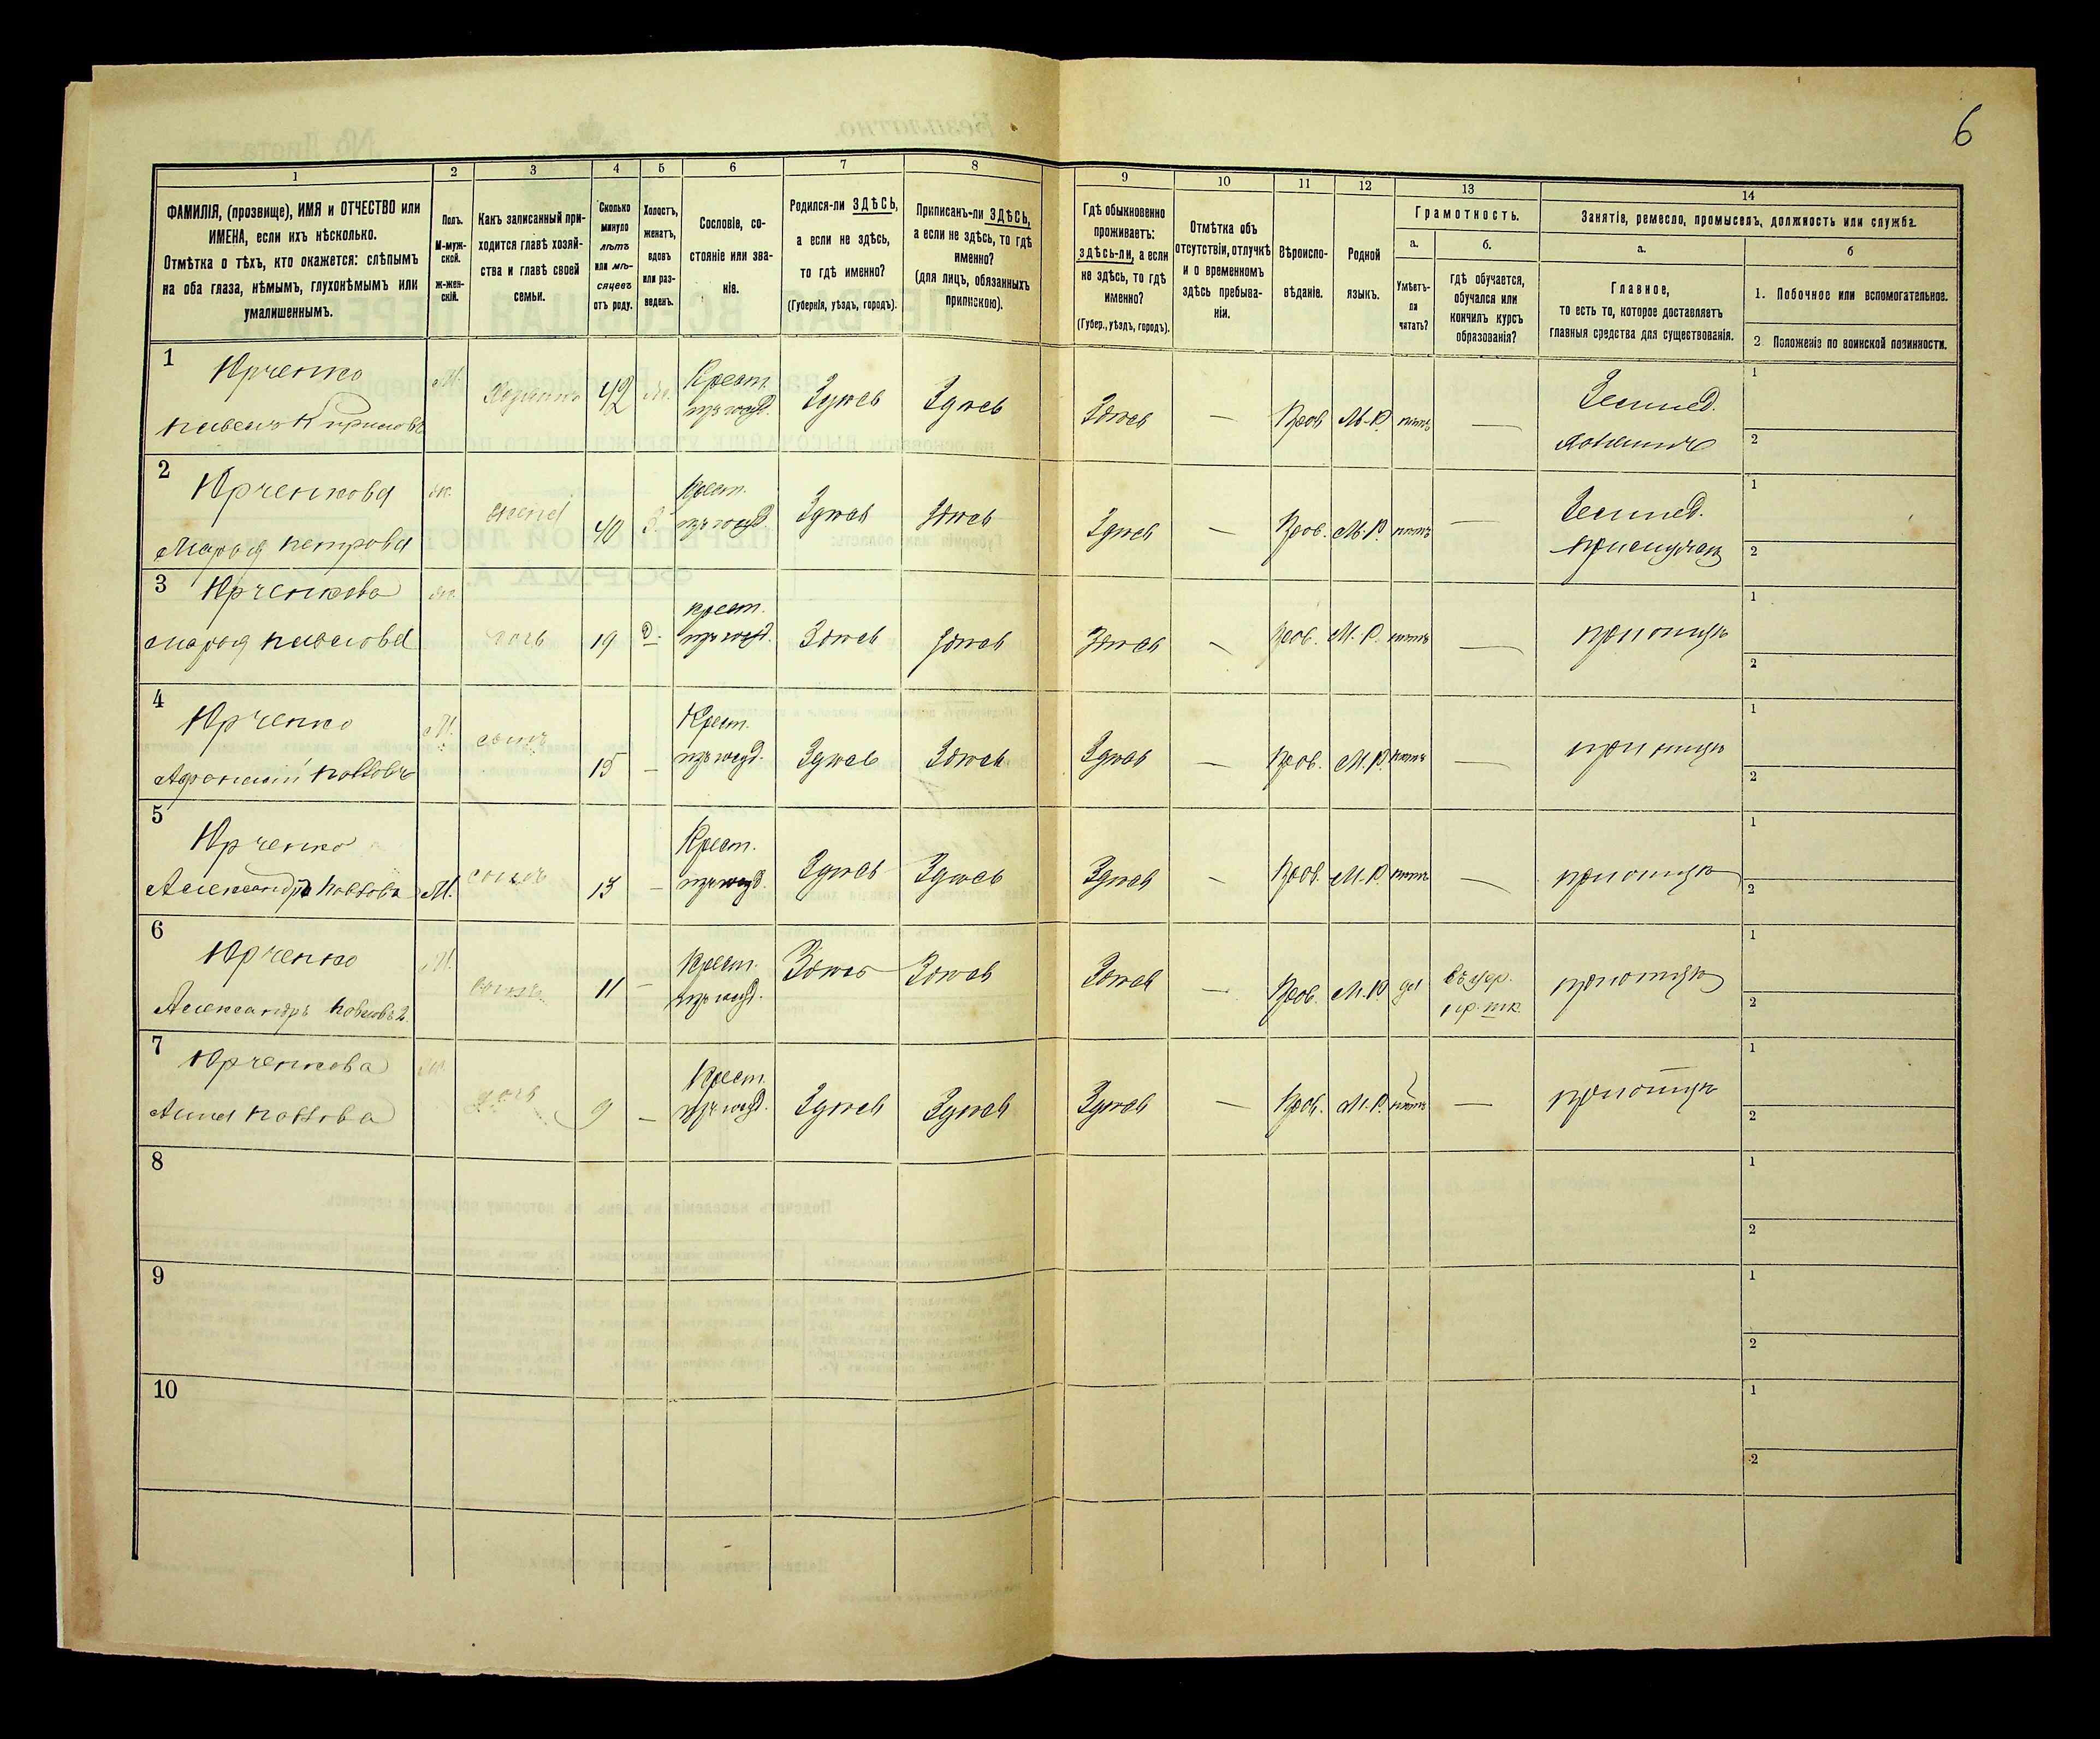 6
1
2
3
4
5
6
7
8
9
10
11
12
13
14
ФАМИЛІЯ, (прозвище), ИМЯ и ОТЧЕСТВО или
ИМЕНА, если ихъ нѣсколько.
Отмѣтка о тѣхъ, кто окажется: слѣпымъ
на оба глаза, нѣмымъ, глухонѣмымъ или
умалишеннымъ.
Полъ.
М-муж-
ской.
Ж-жен-
скій.
Какъ записанный при-
ходится главѣ хозяй-
ства и главѣ своей
семьи.
Сколько
минуло
лѣтъ
или мѣ-
сяцевъ
отъ роду.
Холостъ,
женатъ,
вдовъ
или раз-
веденъ.
Сословіе, со-
стояніе или зва-
ніе.
Родился-ли ЗДѢСЬ,
а если не здѣсь,
то гдѣ именно?
(Губернія, уѣздъ, городъ).
Приписанъ-ли ЗДѢСЬ,
а если не здѣсь, то гдѣ
именно?
(для лицъ, обязанныхъ
припискою).
Гдѣ обыкновенно
проживаетъ:
здѣсь-ли, а если
не здѣсь, то гдѣ
именно?
(Губер., уѣздъ, городъ).
Отмѣтка объ
отсутствіи, отлучкѣ
и о временномъ
здѣсь пребыва-
ніи.
Вѣроиспо-
вѣданіе.
Родной
языкъ.
Грамотность.
а.
Умѣетъ-
ли
читать?
б.
Гдѣ обучается,
обучался или
кончилъ курсъ
образованія?
Занятіе, ремесло, промыселъ, должность или служба.
а.
Главное,
то есть то, которое доставляетъ
главныя средства для существованія.
б
1. Побочное или вспомогательное.
2 Положеніе по воинской повинности.
1
Юрченко
Павелъ Кириловъ
М.
Хозяинъ
42
Крест.
Здѣсь
Здѣсь
Здѣсь
—
Прав.
М.Р.
нѣтъ
—
Землед.
хозяинъ
1
2
2
Юрченкова
Марья Петрова
ж.
жена
40
З.
Крест.
Здѣсь
Здѣсь
Здѣсь
—
Прав.
М.Р.
нѣтъ
—
Землед.
1
2
3
Юрченкова
Марья Павлова
ж.
дочь
19
Д.
крест.
Здѣсь
Здѣсь
Здѣсь
—
Прав.
М.Р.
нѣтъ
—
при отцѣ
1
2
4
Юрченко
Афанасій Павловъ
М.
сынъ
15
—
Крест.
Здѣсь
Здѣсь
Здѣсь
—
Прав.
М.Р.
нѣтъ
—
при отцѣ
1
2
5
Юрченко
Александръ Павловъ
М.
сынъ
13
—
Крест.
Здѣсь
Здѣсь
Здѣсь
—
Прав.
М.Р.
нѣтъ
—
при отцѣ
1
2
6
Юрченко
Александръ Павловъ 2.
М.
сынъ
11
—
Крест.
Здѣсь
Здѣсь
Здѣсь
—
Прав.
М.Р.
да
при отцѣ
1
2
7
Юрченкова
Анна Павлова
ж.
дочь
9
—
Крест.
Здѣсь
Здѣсь
Здѣсь
—
Прав.
М.Р.
нѣтъ
—
при отцѣ
1
2
8
1
2
9
1
2
10
1
2